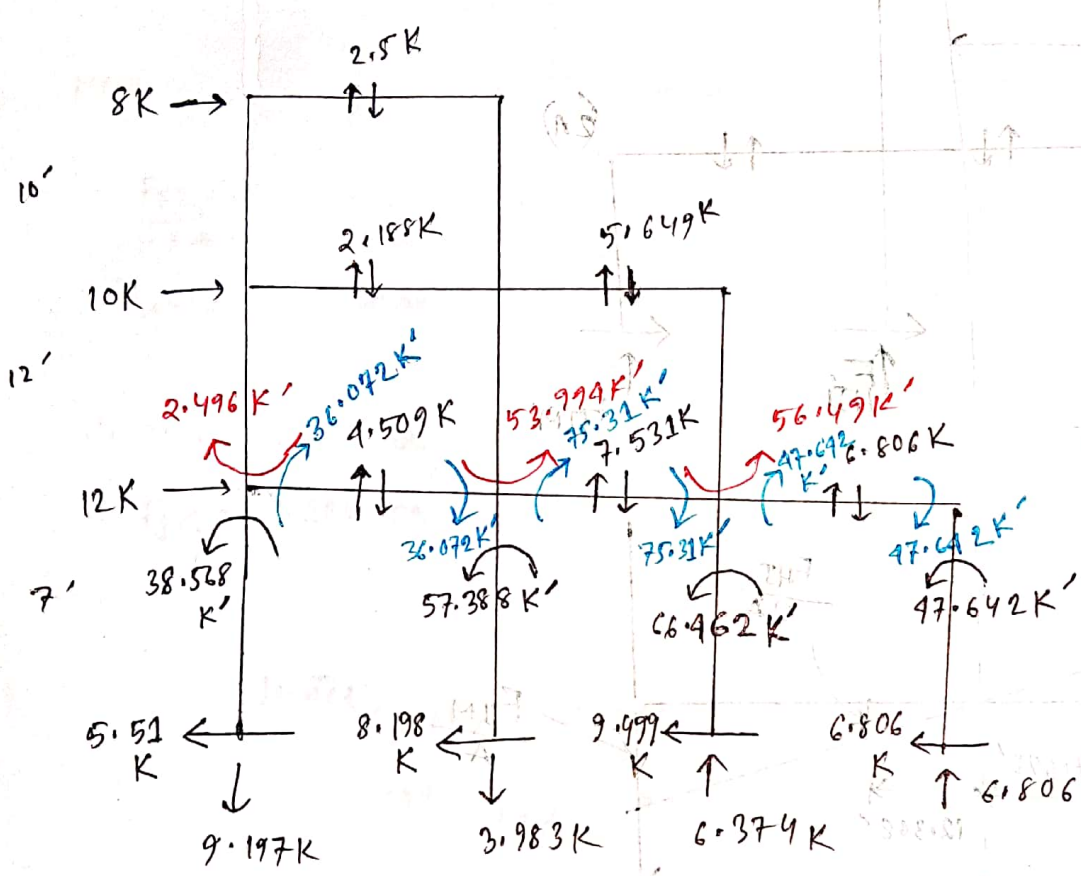 2.5K
8K
10'
2.188K
5.649K
10K
12'
2.496 K'
36.072K'
4.509K
53.994K'
75.31K'
7.531K
56.49K'
47.642 K'
6.806K
12K
36.072K'
75.31K'
47.642K'
7'
38.568 K'
57.388K'
66.462K'
47.642K'
5.51 K
8.198 K
9.499 K
6.806 K
9.197K
3.983K
6.374K
6.806